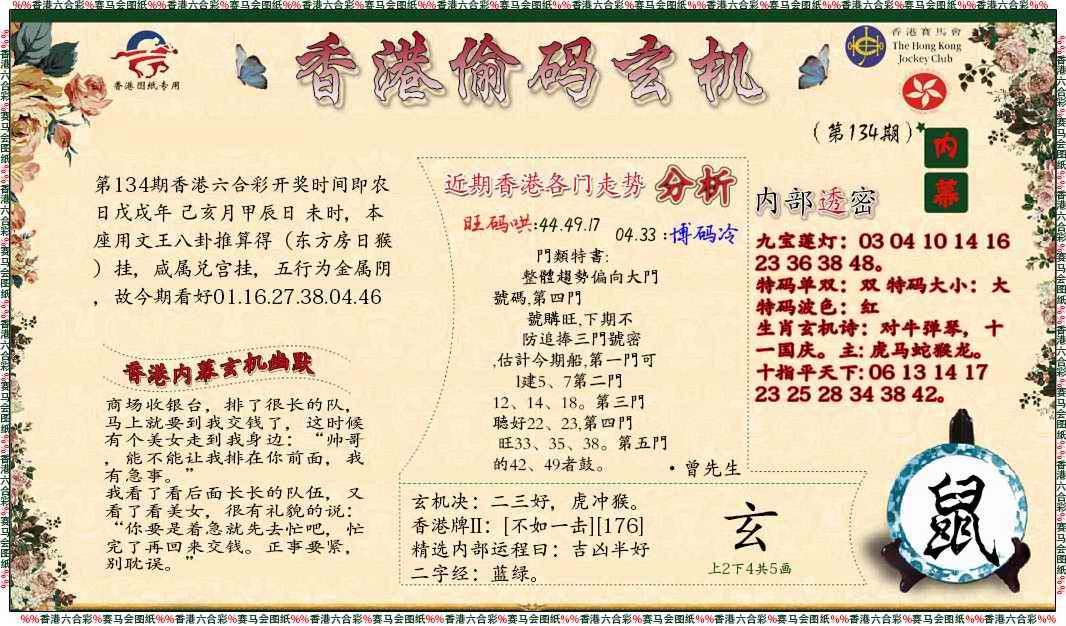 %%香港六合彩%赛马会图纸%%香港六合彩%赛马会图纸%%香港六合彩%赛马会图纸%%香港六合彩%赛马会图纸%%香港六合彩%赛马会图纸%%香港六合彩%赛马会图纸%%香港六合彩%%
香港图纸专用
香港偷码玄机
香港賽馬會
The Hong Kong
Jockey Club
(第134期)
内
幕
第134期香港六合彩开奖时间即农
日戊戌年 己亥月甲辰日 未时，本
座用文王八卦推算得（东方房日猴
）挂，咸属兑宫挂，五行为金属阴
，故今期看好01.16.27.38.04.46
香港内幕玄机幽默
商场收银台，排了很长的队，
马上就要到我交钱了，这时候
有个美女走到我身边：“帅哥
，能不能让我排在你前面，我
有急事。”
我看了看后面长长的队伍，又
看了看美女，很有礼貌的说：
“你要是着急就先去忙吧，忙
完了再回来交钱。正事要紧，
别耽误。”
近期香港各门走势 分析
旺码哄:44.49.17
04.33 :博码冷
門類特書:
整體趨勢偏向大門
號碼,第四門
號購旺,下期不
防追捧三門號密
,估計今期船,第一門可
1建5、7第二門
12、14、18。第三門
聽好22、23,第四門
旺33、35、38。第五門
的42、49者鼓。
·曾先生
内部透密
九宝莲灯：03 04 10 14 16
23 36 38 48。
特码单双：双 特码大小：大
特码波色：红
生肖玄机诗：对牛弹琴，十
一国庆。主: 虎马蛇猴龙。
十指平天下: 06 13 14 17
23 25 28 34 38 42。
玄机决：二三好，虎冲猴。
香港牌II：[不如一击][176]
精选内部运程曰：吉凶半好
二字经：蓝绿。
玄
上2下4共5画
鼠
%%香港六合彩%赛马会图纸%%香港六合彩%赛马会图纸%%香港六合彩%赛马会图纸%%香港六合彩%赛马会图纸%%香港六合彩%赛马会图纸%%香港六合彩%赛马会图纸%%香港六合彩%%